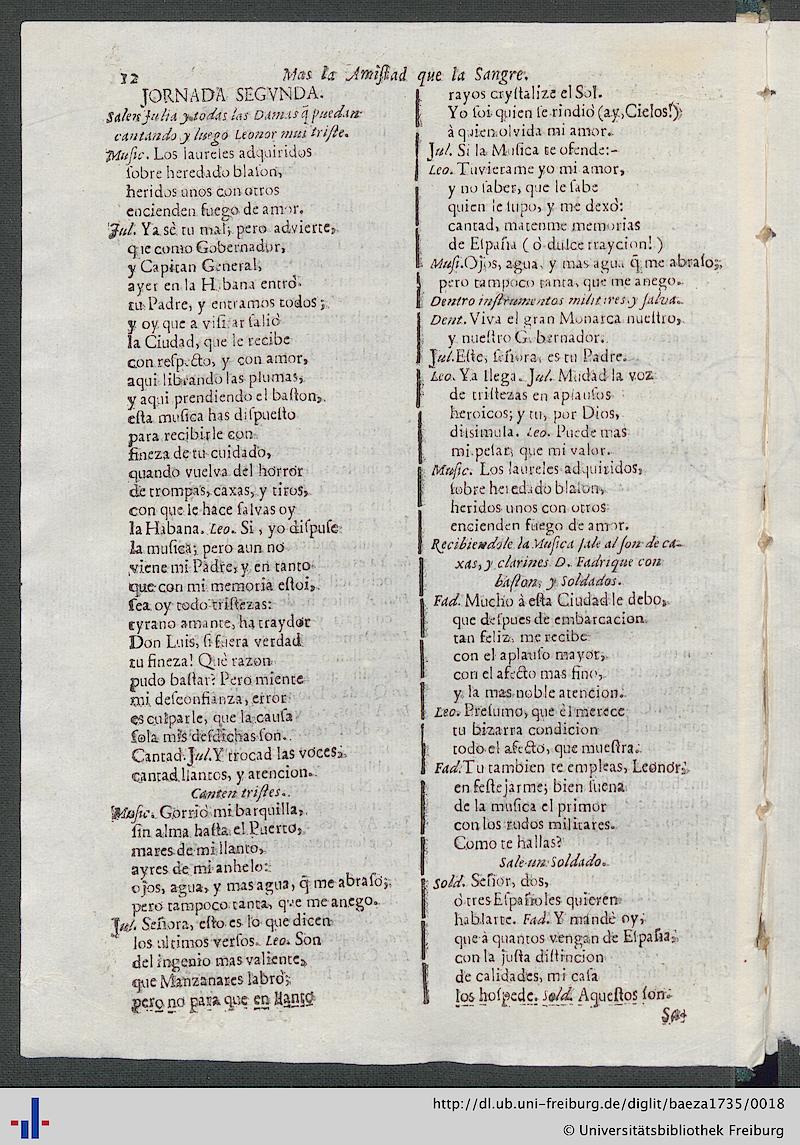 12
Mas la Amiſtad que la Sangre.
JORNADA SEGVNDA.
Salen Julia y todas las Damas q̃ puedan
cantando y luego Leonor mui triſte.
Muſic. Los laureles adquiridos
ſobre heredado blaſon,
heridos unos con otros
encienden fuego de amor.
Jul. Ya sè tu mal; pero advierte,
que como Gobernador,
y Capitan General,
ayer en la H bana entrò
tu Padre, y entramos todos;
y oy que a viſitar ſaliò
la Ciudad, que le recibe
con reſpecto, y con amor,
aqui librando las plumas,
y aqui prendiendo el baſton,
eſta muſica has diſpueſto
para recibirle con
fineza de tu cuidado,
quando vuelva del horror
de trompas, caxas, y tiros,
con que le hace ſalvas oy
la Habana. Leo. Si, yo diſpuſe
la muſica; pero aun no
viene mi Padre, y en tanto
que con mi memoria eſtoi,
ſea oy todo triſtezas:
tyrano amante, ha traydor
Don Luis, ſi fuera verdad
tu fineza! Què razon
pudo baſtar? Pero miente
mi deſconfianza, error
es culparle, que la cauſa
ſola mis deſdichas ſon.
Cantad. Jul. Y trocad las voces,
cantad llantos, y atencion.
Canten triſtes.
Muſic. Corriò mi barquilla,
ſin alma haſta el Puerto,
mares de mi llanto,
ayres de mi anhelo:
ojos, agua, y mas agua, q̃ me abraſo;
pero tampoco tanta, que me anego.
Jul. Señora, eſto es lo que dicen
los ultimos verſos. Leo. Son
del ingenio mas valiente,
que Manzanares labrò;
pero no para que en llanto
rayos cryſtalize el Sol.
Yo ſoi quien ſe rindiò (ay, Cielos!)
à quien olvida mi amor.
Jul. Si la Muſica te ofende:-
Leo. Tuvierame yo mi amor,
y no ſaber, que le ſabe
quien le ſupo, y me dexò:
cantad, matenme memorias
de Eſpaña ( ò dulce traycion! )
Muſi. Ojos, agua, y mas agua q̃ me abraſo;
pero tampoco tanta, que me anego.
Dentro inſtrumentos militares y ſalva.
Dent. Viva el gran Monarca nueſtro,
y nueſtro G bernador.
Jul. Eſte, ſeñora, es tu Padre.
Leo. Ya llega. Jul. Mudad la voz
de triſtezas en aplauſos
heroicos; y tu, por Dios,
diſsimula. Leo. Puede mas
mi peſar, que mi valor.
Muſic. Los laureles adquiridos,
ſobre heredado blaſon,
heridos unos con otros
encienden fuego de amor.
Recibiendole la Muſica ſale al ſon de ca-
xas, y clarines D. Fadrique con
baſton, y Soldados.
Fad. Mucho à eſta Ciudad le debo,
que deſpues de embarcacion
tan feliz, me recibe
con el aplauſo mayor,
con el afecto mas fino,
y la mas noble atencion.
Leo. Preſumo, que èl merece
tu bizarra condicion
todo el afecto, que mueſtra.
Fad. Tu tambien te empleas, Leonor,
en feſtejarme; bien ſuena
de la muſica el primor
con los rudos militares.
Como te hallas?
Sale un Soldado.
Sold. Señor, dos,
ò tres Eſpañoles quieren
hablarte. Fad. Y mandè oy,
que à quantos vengan de Eſpaña,
con la juſta diſtincion
de calidades, mi caſa
los hoſpede. Sold. Aqueſtos ſon.
http://dl.ub.uni-freiburg.de/diglit/baeza1735/0018
© Universitätsbibliothek Freiburg